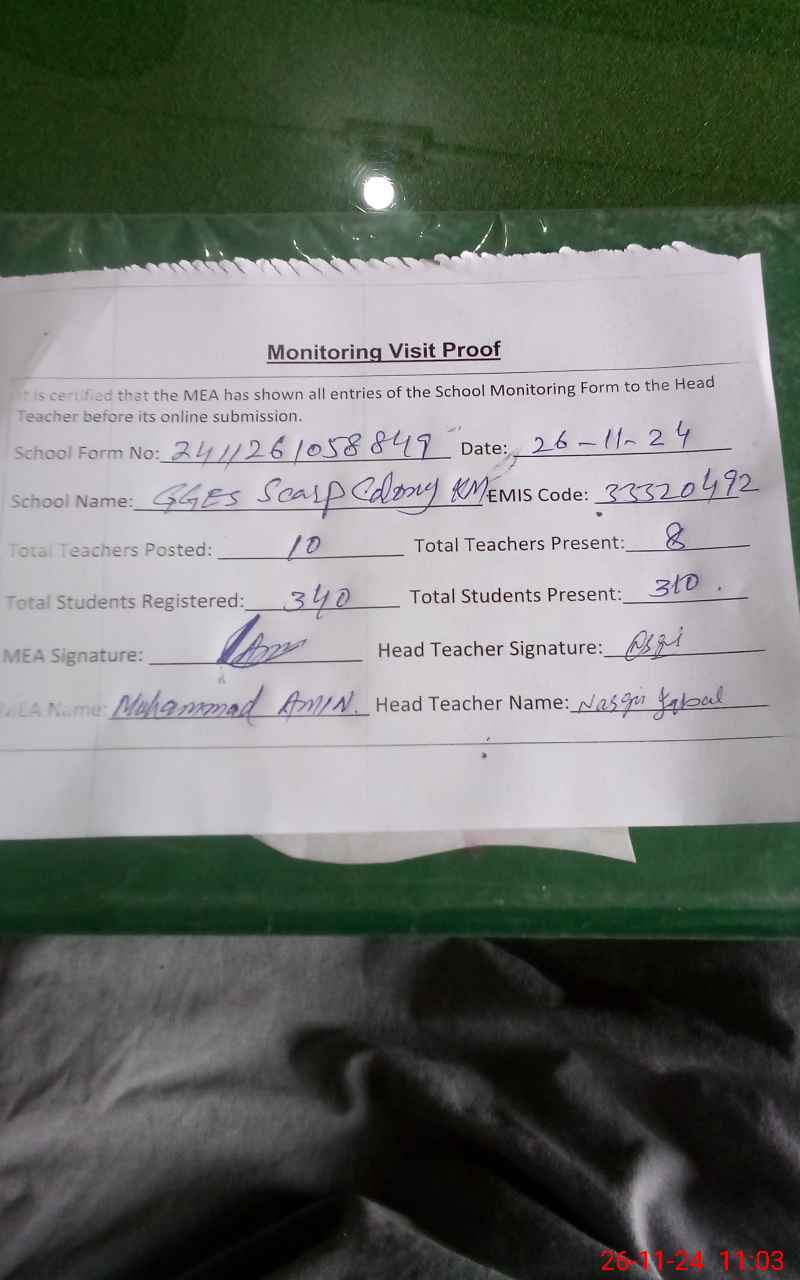 Monitoring Visit Proof
It is certified that the MEA has shown all entries of the School Monitoring Form to the Head
Teacher before its online submission.
School Form No: 2411261058849 Date: 26-11-24
School Name: GGES Scarp Colony KM EMIS Code: 33320492
Total Teachers Posted: 10 Total Teachers Present: 8
Total Students Registered: 340 Total Students Present: 310.
MEA Signature: Head Teacher Signature:
MEA Name: Muhammad AMIN. Head Teacher Name: Iqbal
26-11-24 11:03